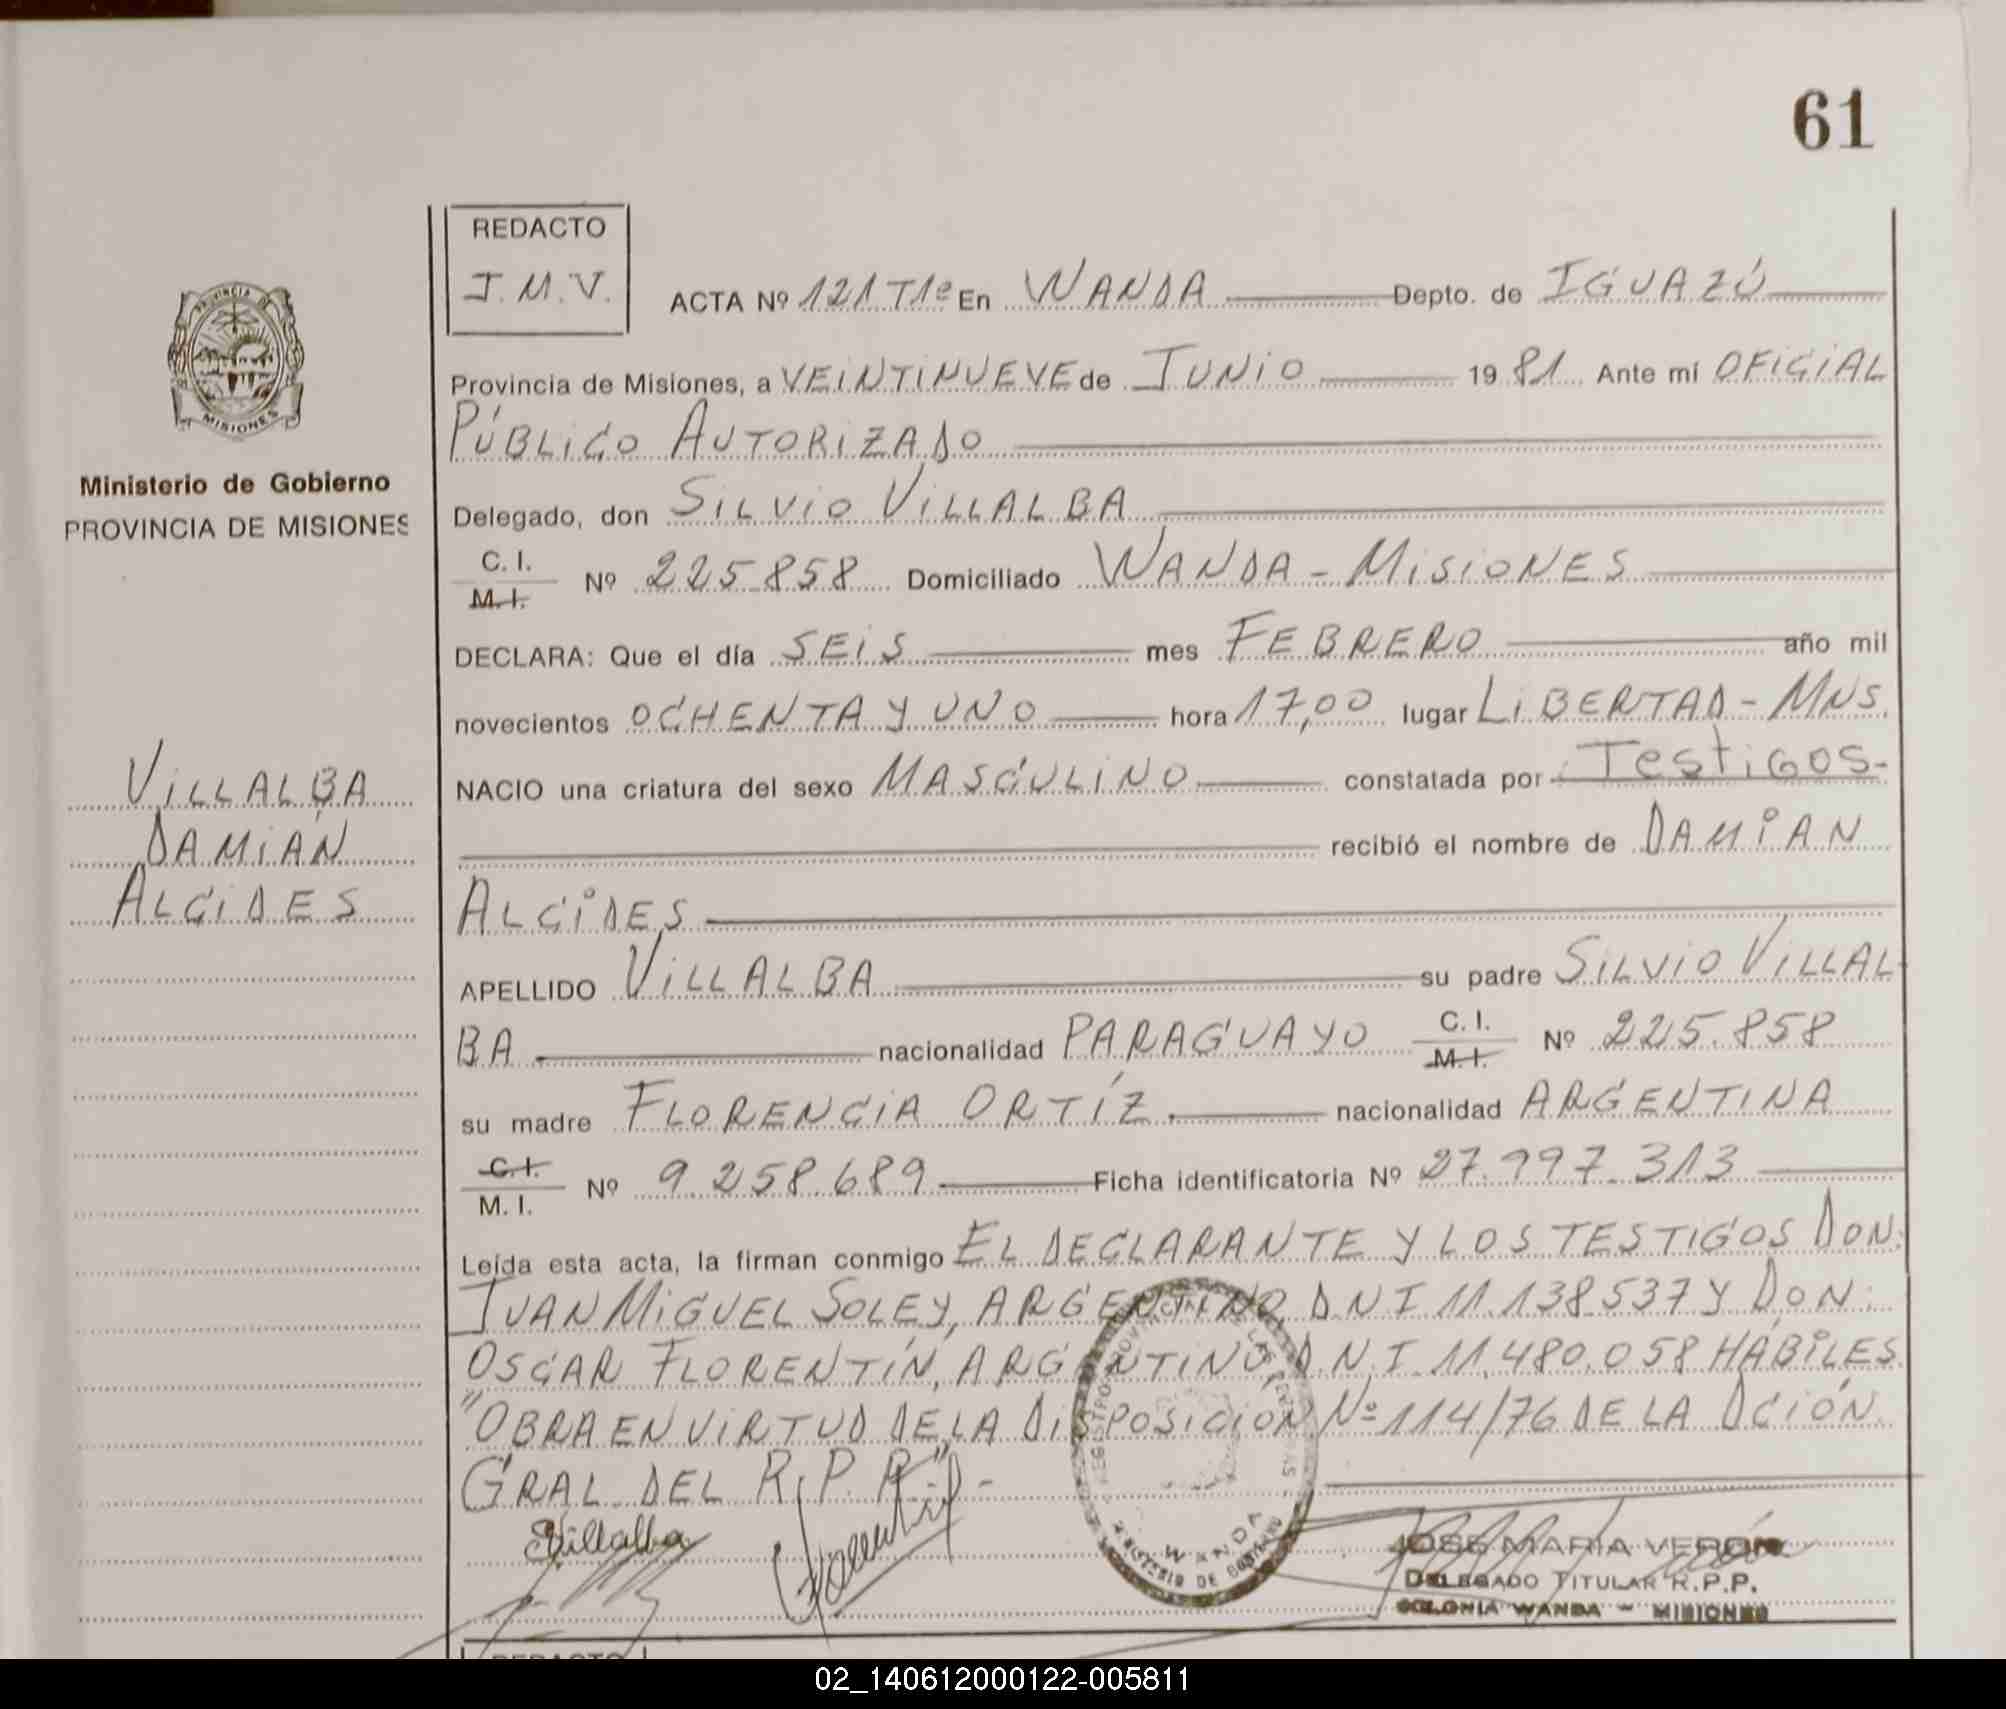 61
REDACTO
J.M.V.
ACTA Nº 121 T1º En WANDA Depto. de IGUAZÚ
Provincia de Misiones, a VEINTINUEVE de JUNIO 1981 Ante mí OFICIAL
PÚBLICO AUTORIZADO
Delegado, don SILVIO VILLALBA
C. I.
M. I. Nº 225.858 Domiciliado WANDA - MISIONES
DECLARA: Que el día SEIS mes FEBRERO año mil
novecientos OCHENTA Y UNO hora 17,00 lugar LIBERTAD - MNS.
NACIO una criatura del sexo MASCULINO constatada por TESTIGOS-
recibió el nombre de DAMIAN
ALCIDES
APELLIDO VILLALBA su padre SILVIO VILLAL-
BA nacionalidad PARAGUAYO C. I.
M. I. Nº 225.858
su madre FLORENCIA ORTÍZ. nacionalidad ARGENTINA
C. I.
M. I. Nº 9.258.689 Ficha identificatoria Nº 27.997.313
Leída esta acta, la firman conmigo EL DECLARANTE Y LOS TESTIGOS DON:
JUAN MIGUEL SOLEY, ARGENTINO, DNI 11.138.537 Y DON:
OSCAR FLORENTÍN, ARGENTINO, D.N.I 11.480.058 HÁBILES.
"OBRA EN VIRTUD DE LA DISPOSICIÓN Nº 114/76 DE LA DCIÓN.
GRAL. DEL R.P.P."-
SVillalba
JOSE MARIA VERÓN
DELEGADO TITULAR R.P.P.
COLONIA WANDA - MISIONES
WANDA
MINISTERIO DE GOBIERNO
PROVINCIA DE
MISIONES
Ministerio de Gobierno
PROVINCIA DE MISIONES
VILLALBA
DAMIÁN
ALCIDES
REDACTO
02_140612000122-005811